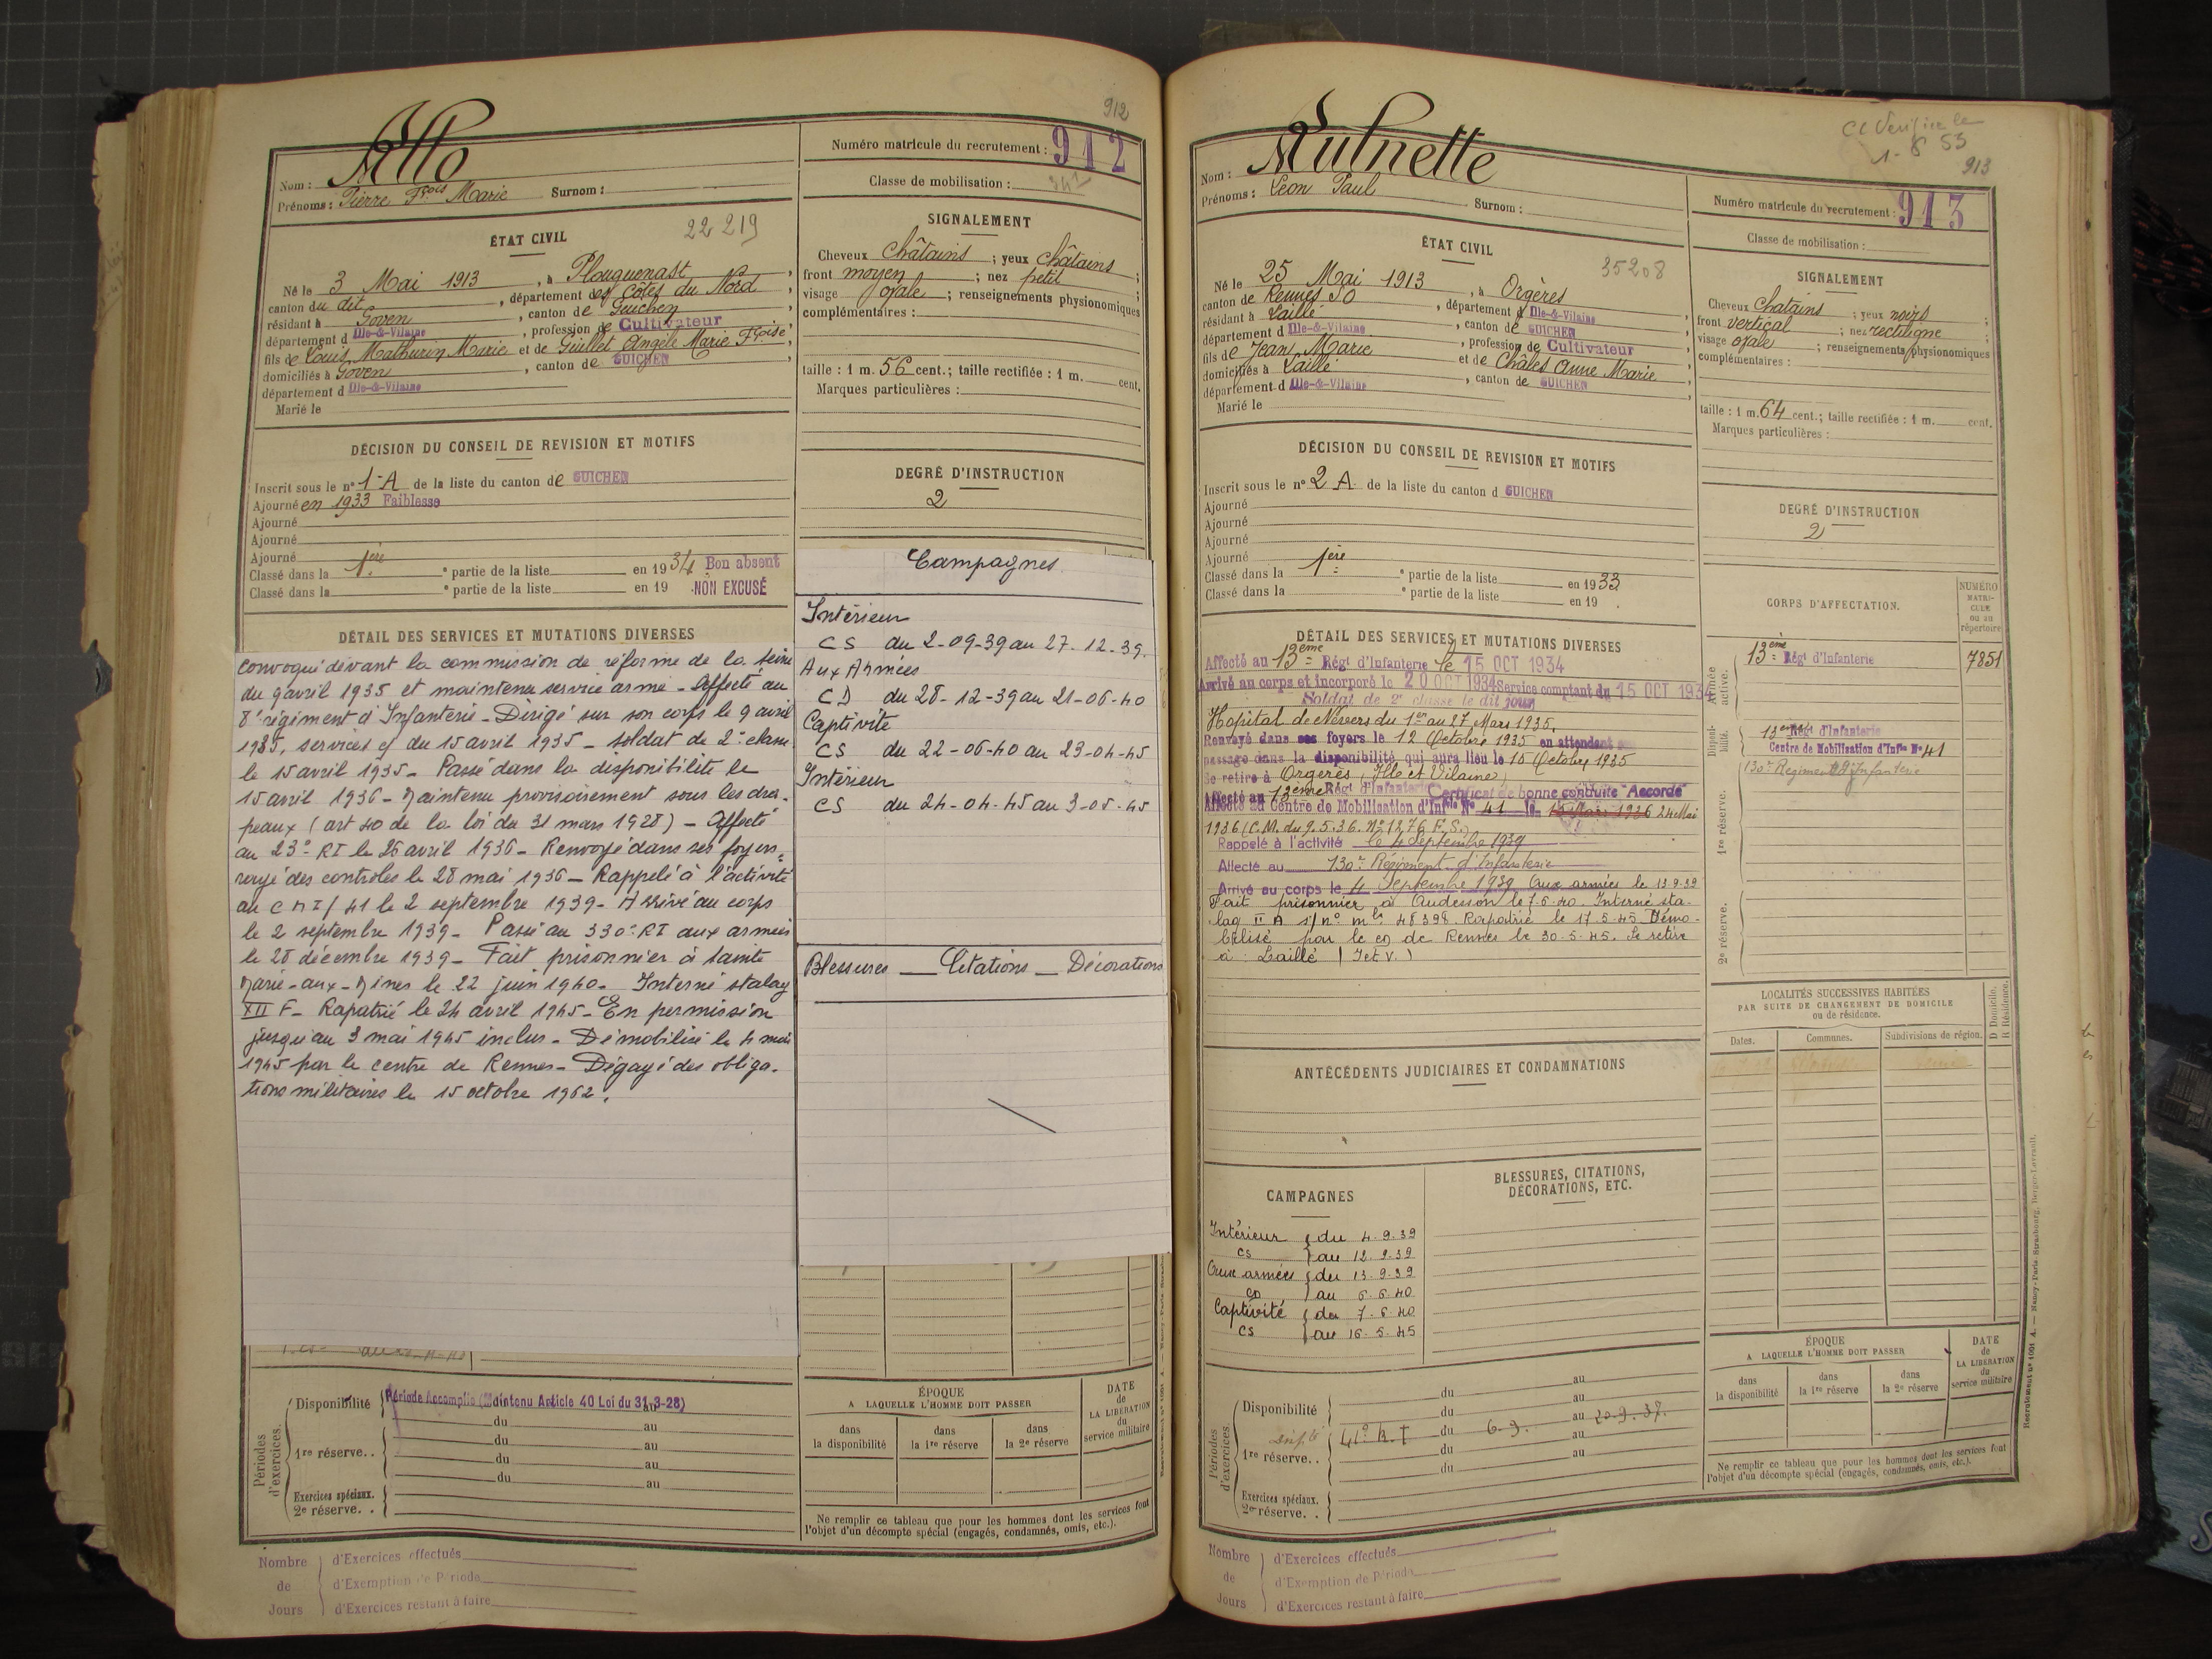 912
Allo
Nom :
Prénoms : Pierre Fçois Marie Surnom :
Numéro matricule du recrutement : 912
Classe de mobilisation :
ÉTAT CIVIL
22 219
Né le 3 Mai 1913, à Plouguenast,
canton du dit, département des Côtes du Nord,
résidant à Goven, canton de Guichen,
département d Ille-&-Vilaine, profession de Cultivateur
fils de Louis Mathurin Marie et de Guillet Angèle Marie Fçoise,
domiciliés à Goven, canton de GUICHEN,
département d Ille-&-Vilaine
Marié le
SIGNALEMENT
Cheveux Châtains ; yeux châtains ;
front moyen ; nez petit ;
visage ovale ; renseignements physionomiques
complémentaires :
taille : 1 m. 56 cent. ; taille rectifiée : 1 m. cent.
Marques particulières :
DÉCISION DU CONSEIL DE REVISION ET MOTIFS
Inscrit sous le n° 1-A de la liste du canton de GUICHEN
Ajourné en 1933 Faiblesse
Ajourné
Ajourné
Ajourné
Classé dans la 1ère partie de la liste en 1934 Bon absent
Classé dans la partie de la liste en 19 NON EXCUSÉ
DEGRÉ D'INSTRUCTION
2
DÉTAIL DES SERVICES ET MUTATIONS DIVERSES
Convoqué devant la commission de réforme de la Seine
du 9 avril 1935 et maintenu service armé - Affecté au
8e régiment d'Infanterie - Dirigé sur son corps le 9 avril
1935, services c/ du 15 avril 1935 - soldat de 2e classe
le 15 avril 1935 - Passé dans la disponibilité le
15 avril 1936 - Maintenu provisoirement sous les dra-
peaux (art 40 de la loi du 31 mars 1928) - Affecté
au 23e RI le 26 avril 1936 - Renvoyé dans ses foyers,
rayé des controles le 28 mai 1936 - Rappelé à l'activité
au C M I / 41 le 2 septembre 1939 - Arrivé au corps
le 2 septembre 1939 - Passé au 330e RI aux armées
le 28 décembre 1939 - Fait prisonnier à Sainte
Marie-aux-Mines le 22 juin 1940 - Interné stalag
XII F - Rapatrié le 24 avril 1945 - En permission
jusqu'au 3 mai 1945 inclus - Démobilisé le 4 mai
1945 par le centre de Rennes - Dégagé des obliga-
tions militaires le 15 octobre 1962.
Campagnes
Intérieur
CS du 2-09-39 au 27-12-39.
Aux Armées
CD du 28-12-39 au 21-06-40
Captivité
CS du 22-06-40 au 23-04-45
Intérieur
CS du 24-04-45 au 3-05-45
Blessures - Citations - Décorations
Périodes d'exercices.
Disponibilité Période Accomplie (Maintenu Article 40 Loi du 31-3-28)
du au
1re réserve.. du au
du au
du au
Exercices spéciaux.
2e réserve. .
ÉPOQUE
A LAQUELLE L'HOMME DOIT PASSER
dans la disponibilité
dans la 1re réserve
dans la 2e réserve
DATE de LA LIBÉRATION du service militaire
Ne remplir ce tableau que pour les hommes dont les services font
l'objet d'un décompte spécial (engagés, condamnés, omis, etc.).
Nombre de Jours
d'Exercices effectués
d'Exemption de Période
d'Exercices restant à faire
Cl Verifiée le
1-8 53
913
Aulnette
Nom :
Prénoms : Léon Paul
Surnom :
Numéro matricule du recrutement : 913
Classe de mobilisation :
ÉTAT CIVIL
35208
Né le 25 Mai 1913, à Orgères
canton de Rennes SO, département d Ille-&-Vilaine
résidant à Laillé, canton de GUICHEN
département d Ille-&-Vilaine, profession de Cultivateur
fils de Jean Marie et de Châles Anne Marie,
domiciliés à Laillé, canton de GUICHEN
département d Ille-&-Vilaine
Marié le
SIGNALEMENT
Cheveux Chatains ; yeux noirs ;
front vertical ; nez rectiligne ;
visage ovale ; renseignements physionomiques
complémentaires :
taille : 1 m. 64 cent. ; taille rectifiée : 1 m. cent.
Marques particulières :
DÉCISION DU CONSEIL DE REVISION ET MOTIFS
Inscrit sous le n° 2 A de la liste du canton d GUICHEN
Ajourné
Ajourné
Ajourné
Ajourné
Classé dans la 1ère partie de la liste en 1933
Classé dans la partie de la liste en 19 .
DEGRÉ D'INSTRUCTION
2
DÉTAIL DES SERVICES ET MUTATIONS DIVERSES
Affecté au 13ème Régt d'Infanterie le 15 OCT 1934
Arrivé au corps et incorporé le 20 OCT 1934 Service comptant du 15 OCT 1934
Soldat de 2e classe le dit jour
Hopital de Nevers du 1er au 27 Mars 1935.
Renvoyé dans ses foyers le 12 Octobre 1935 en attendant
passage dans la disponibilité qui aura lieu le 15 Octobre 1935
Se retire à Orgères (Ille et Vilaine)
Affecté au 13ème Régt d'Infanterie Certificat de bonne conduite "Accordé"
Affecté au Centre de Mobilisation d'Infie N° 41 le 24 Mai
1936 (C.M. du 9.5.36. N° 1276 F.S.)
Rappelé à l'activité le 4 Septembre 1939
Affecté au 130e Régiment d'Infanterie
Arrivé au corps le 4 Septembre 1939 Aux armées le 13.9.39
Fait prisonnier à Audesson le 7.6.40. Interné sta-
lag II A s/ n° mle 48398. Rapatrié le 17.5.45. Démo-
bilisé par le cn de Rennes le 30.5.45. Se retire
à : Laillé (I et V.)
CORPS D'AFFECTATION.
NUMÉRO MATRI-CULE ou au répertoire
Armée active.
13ème Régt d'Infanterie
7851
Disponi-bilité.
13e Régt d'Infanterie
Centre de Mobilisation d'Infie N° 41
130e Régiment d'Infanterie
1re réserve.
2e réserve.
LOCALITÉS SUCCESSIVES HABITÉES
PAR SUITE DE CHANGEMENT DE DOMICILE
ou de résidence.
D Domicile.
R Résidence.
Dates. Communes. Subdivisions de région.
ANTÉCÉDENTS JUDICIAIRES ET CONDAMNATIONS
CAMPAGNES
Intérieur du 4.9.39
CS au 12.9.39
Aux armées du 13.9.39
CD au 6.6.40
Captivité du 7.6.40
CS au 16.5.45
BLESSURES, CITATIONS,
DÉCORATIONS, ETC.
Périodes d'exercices
Disponibilité du au
du au
41e R.I du 6.9. au 20.9.37.
1re réserve.. du au
du
Exercices spéciaux.
2e réserve. .
ÉPOQUE
A LAQUELLE L'HOMME DOIT PASSER
dans la disponibilité
dans la 1re réserve
dans la 2e réserve
DATE de LA LIBÉRATION du service militaire
Ne remplir ce tableau que pour les hommes dont les services font
l'objet d'un décompte spécial (engagés, condamnés, omis, etc.).
Recrutement N° 1001 A. — Nancy-Paris-Strasbourg, Berger-Levrault.
Nombre de Jours
d'Exercices effectués
d'Exemption de Période
d'Exercices restant à faire